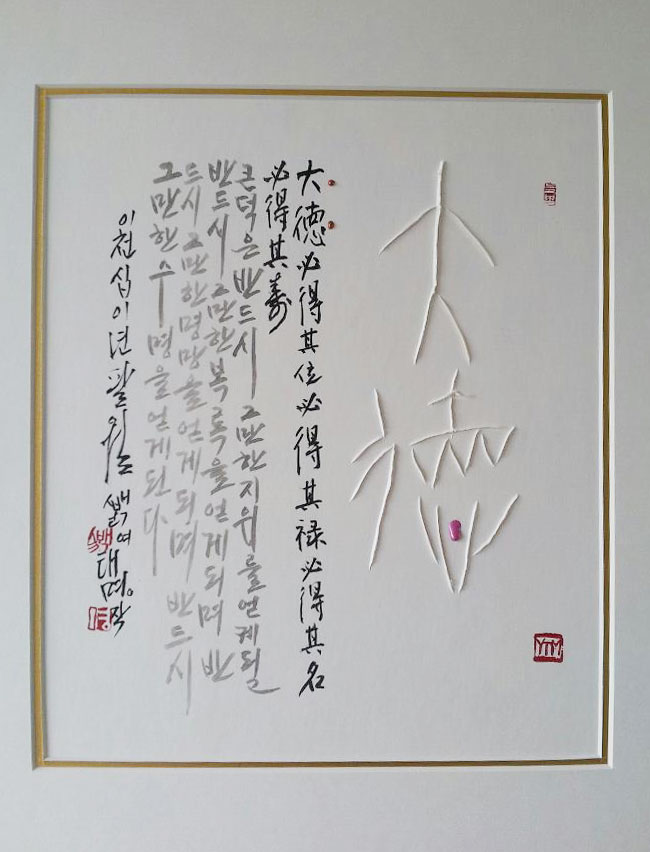 大德
大德必得其位必得其禄必得其名
必得其寿
큰덕은 반드시 그만한지위를얻게될
반드시 그만한복록을얻게되며 반
드시 그만한명망을얻게되며 반드시
그만한수명을얻게된다
이천십이년팔월